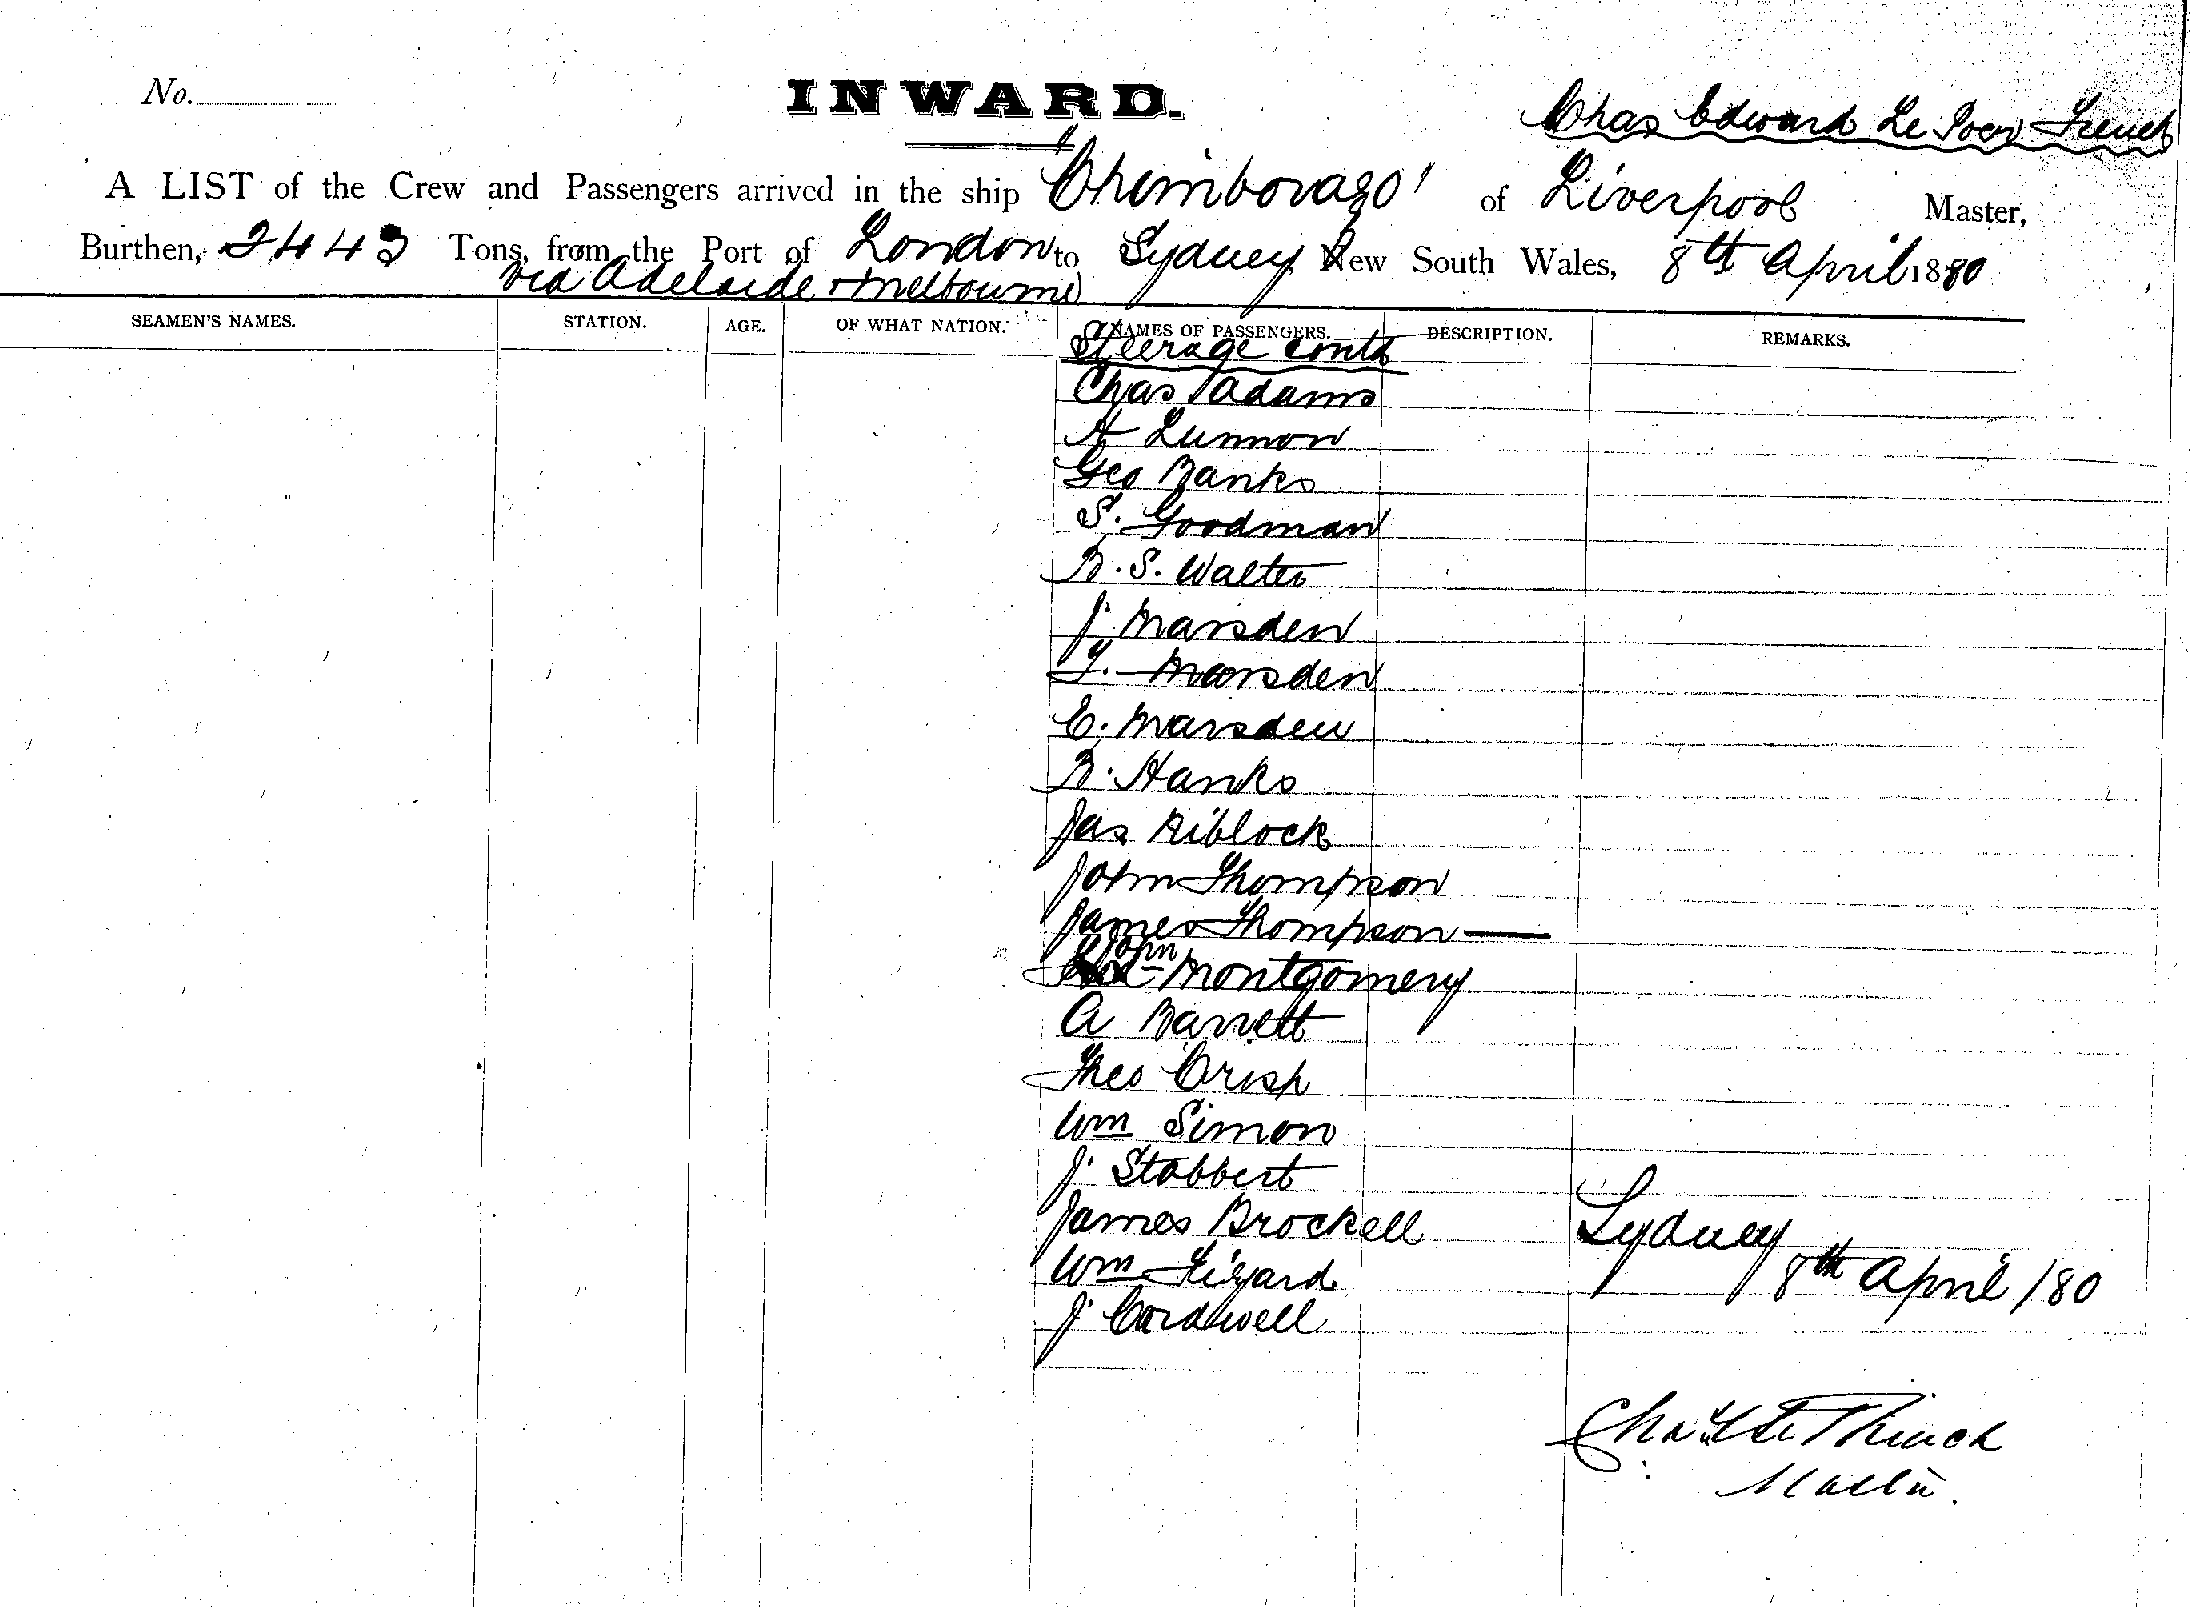 No.
INWARD.
Chas Edward Le Poer Trench
A LIST of the Crew and Passengers arrived in the ship "Chimborazo" of Liverpool Master,
Burthen, 2443 Tons, from the Port of London to Sydney New South Wales, 8th April 1880
via Adelaide & Melbourne
SEAMEN'S NAMES. STATION. AGE. OF WHAT NATION. NAMES OF PASSENGERS. DESCRIPTION. REMARKS.
Steerage contd
Chas Adams
A Lunnon
Geo Banks
S. Goodman
B. S. Walter
J. Marsden
T. Marsden
E. Marsden
B. Hanks
Jas Niblock
John Thompson
James Thompson
John Montgomery
A Barrett
Theo Crisp
Wm Simon
J. Stabbert
James Brockell
Wm Lizard
J. Cordwell
Sydney
8th April /80
Master.